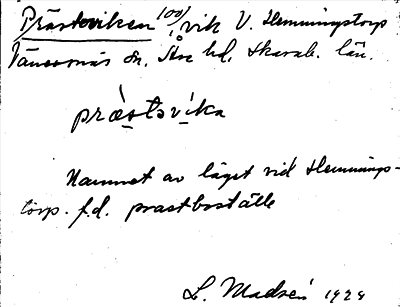 Prästeviken 100/ vik V. Hemmingstorp
Vänersnäs sn. Åse hd. Skarab. län.
prästsvika
Namnet av läget vid Hemmings-
torp. f.d. prastboställe
L. Madsén 1929